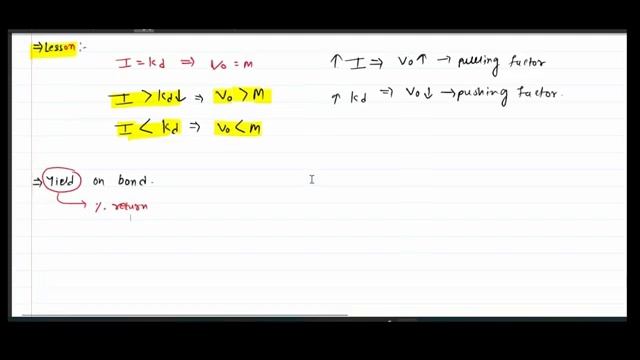 ⇒ Lesson :-
I = kd ⇒ Vo = m
I > kd↓ ⇒ Vo > M
I < kd ⇒ Vo < m
↑ I ⇒ Vo ↑ → pulling factor
↑ kd ⇒ Vo ↓ → pushing factor.
⇒ Yield on bond.
→ %. return